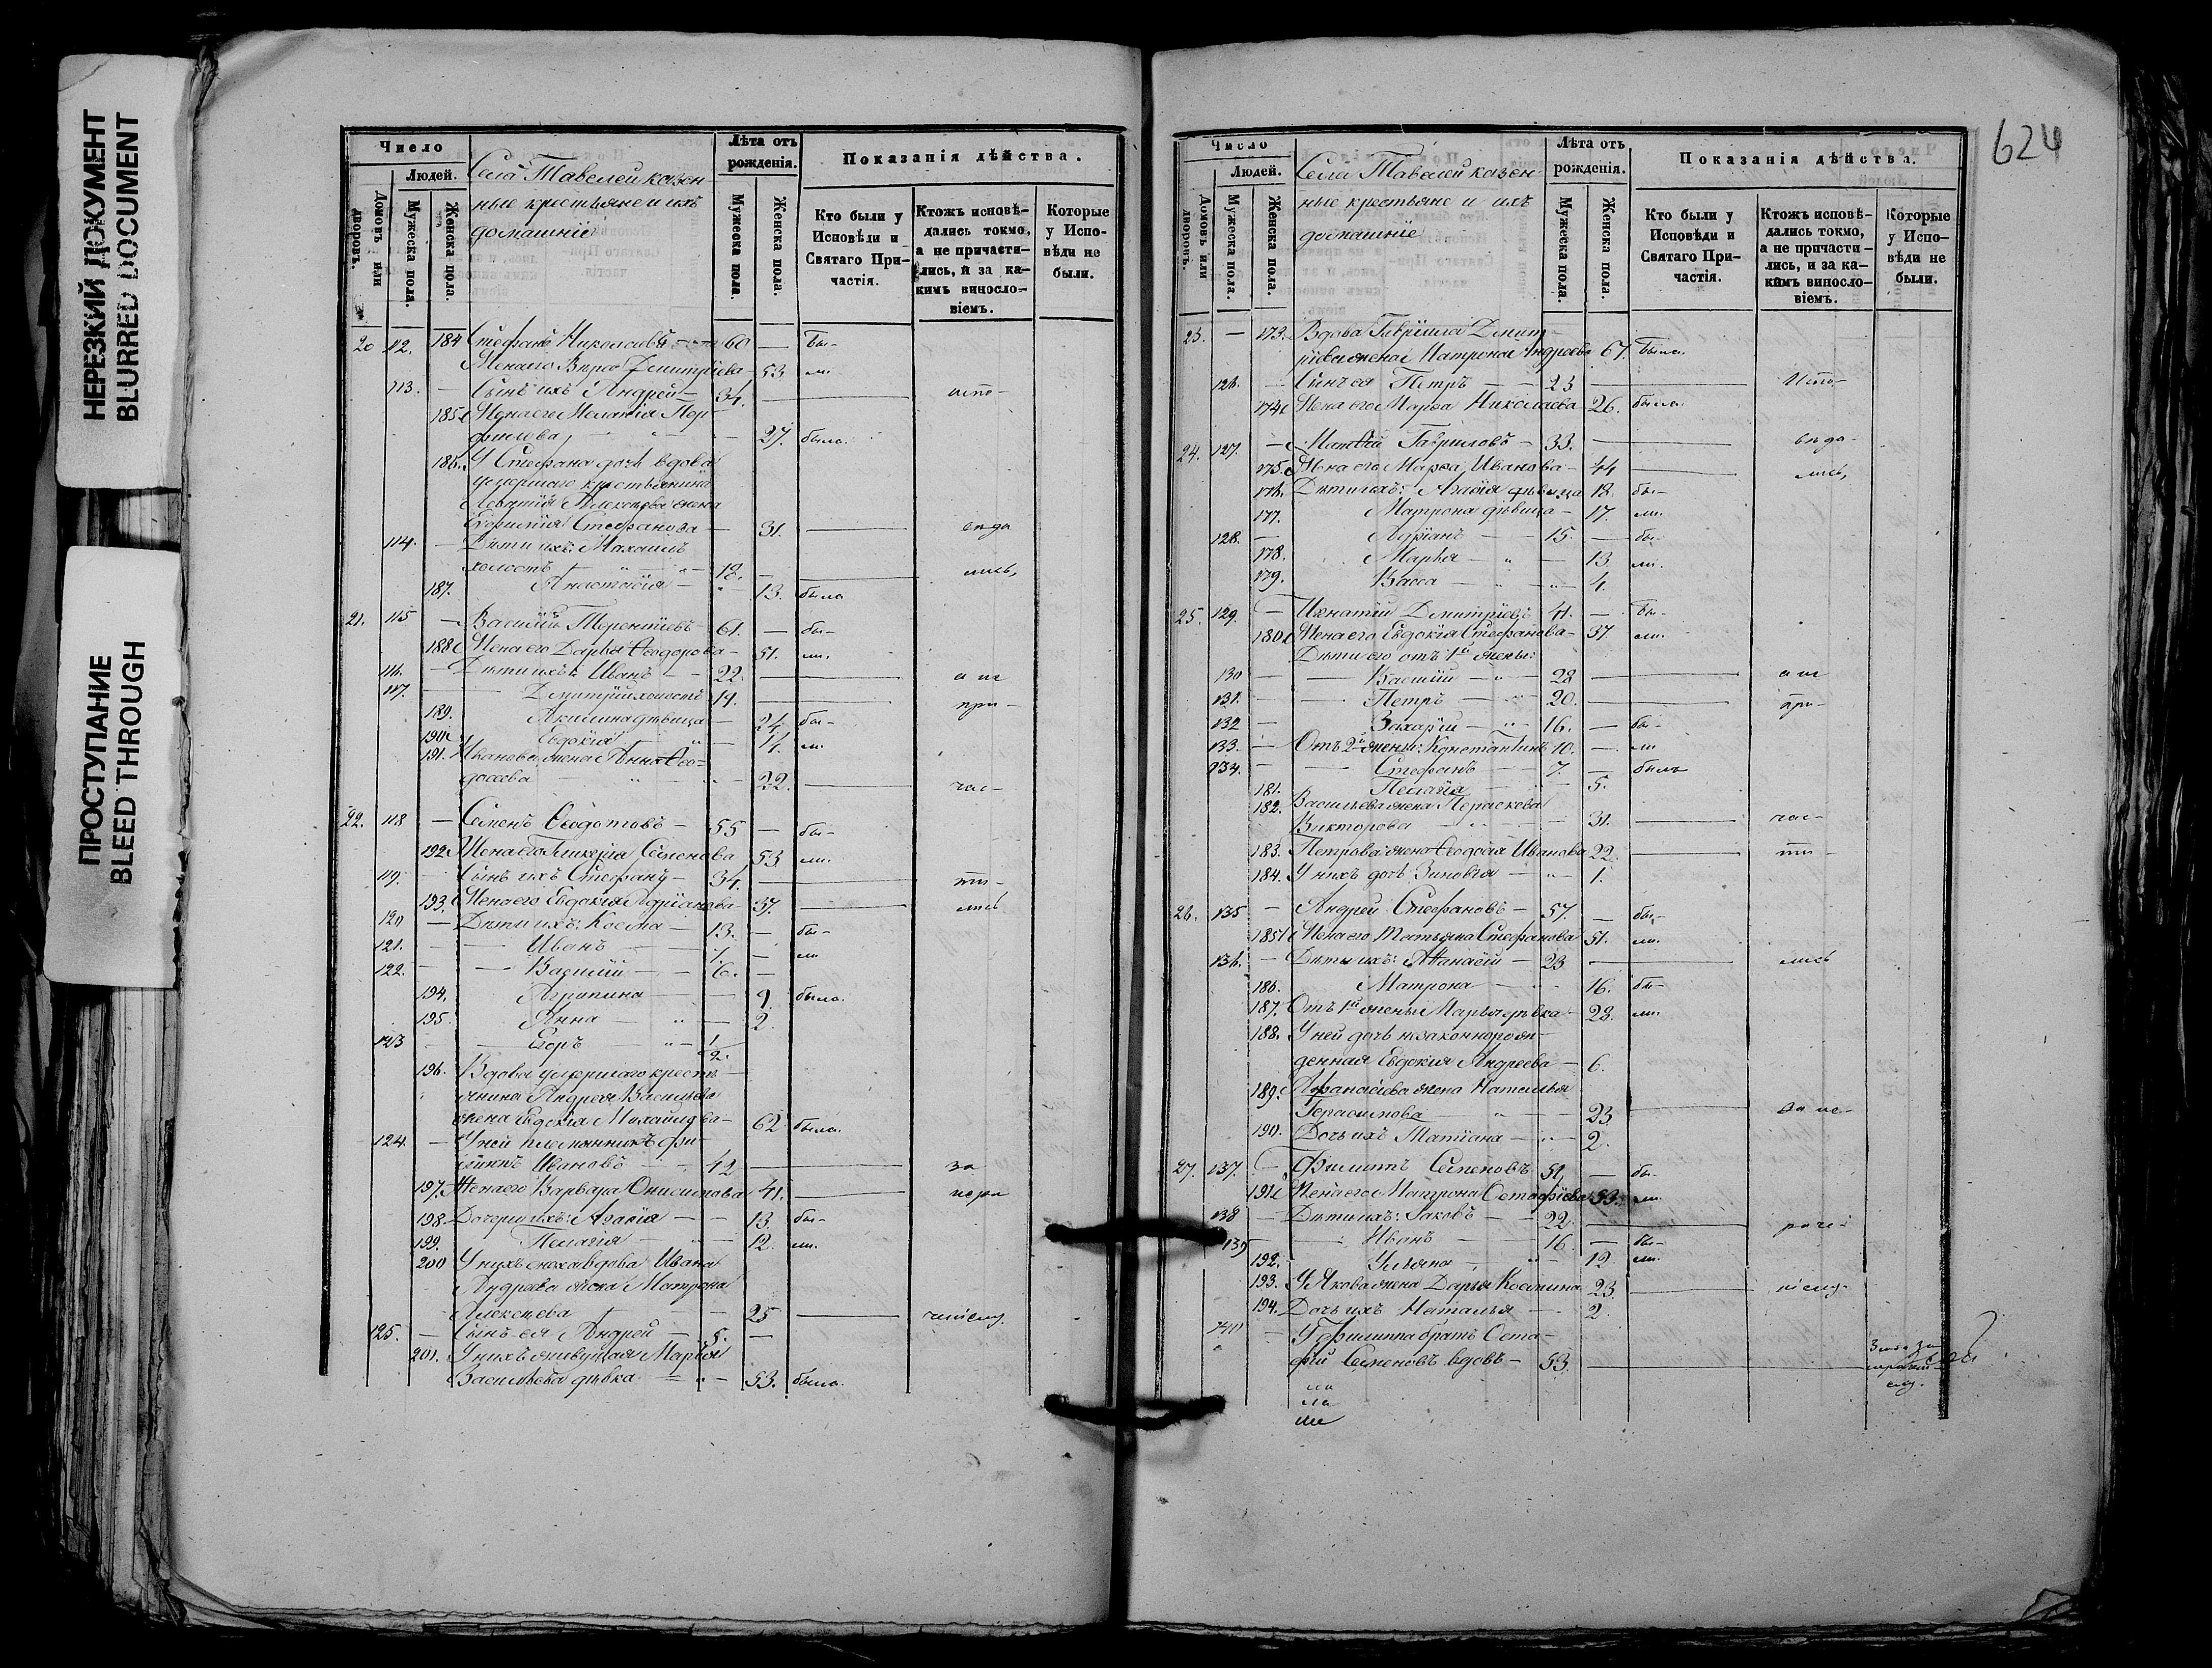 НЕРЕЗКИЙ ДОКУМЕНТ
BLURRED DOCUMENT
ПРОСТУПАНИЕ
BLEED THROUGH
Число
Домовъ или дворовъ.
Людей.
Мужеска пола.
Женска пола.
Села Тавелей казен-
ные крестьяне и ихъ
домашніе
Лѣта отъ рожденія.
Мужеска пола.
Женска пола.
Показанія дѣйства.
Кто были у Исповѣди и Святаго При-частія.
Ктожъ исповѣ-дались токмо, а не причасти-лись, и за ка-кимъ винослo-віемъ.
Которые у Испо-вѣди не были.
20 112. 184 Стефанъ Николаевъ — 60 — бы-
Жена его Вѣра Димитріева — 53 ли.
113. — Сынъ ихъ Андрей — 34. — испо-
185 Жена его Меланія Пор-
филева — 27. была.
186. У Стефана дочь вдова
умершаго крестьянина
Алексѣева жена
Евфимія Стефанова — 31. — вѣда
114. — Дѣти ихъ: Михаилъ
холостъ — 18. — лись,
187. Анастасія — 13. была
21. 115 — Василій Терентіевъ 61. — бы-
188 Жена его Дарья Ѳеодорова — 51. ли.
116. — Дѣти ихъ: Иванъ — 22. — а не
117. — Димитрій холостъ 19. — при-
189. Акилина дѣвица — 24. бы-
190 Евдокія — 14. ли.
191. Иванова жена Анна Ѳео-
досева — 22. — час-
22. 118 — Семенъ Ѳеодотовъ — 55 — бы-
192 Жена его Гликерія Семенова 53 ли.
119. — Сынъ ихъ Стефанъ — 34. — ти-
193. Жена его Евдокія Адріанова 37. — лись
120 — Дѣти ихъ: Косма — 13. — бы-
121. — Иванъ — 7. — ли
122. — Василій — 6. —
194. Агрипина — 9. была.
195. Анна — 2.
123 — Егоръ — 1/2.
196. Вдова умершаго кресть-
янина Андрея Васильева
жена Евдокія Михайлова — 62 была.
124. — У ней племянникъ Фи-
липпъ Ивановъ — 42 — за
197. Жена его Варвара Онисимова 41. — нера
198. Дочери ихъ: Агафія — 13. бы-
199. Пелагія — 12. ли.
200 У нихъ сноха вдова Ивана
Андреева жена Матрона
Алексѣева — 25 —
125. — Сынъ ея Андрей — 5. —
201. У нихъ живущая Марья
Васильева дѣвка — 53. была.
624
Число
Домовъ или дворовъ.
Людей.
Мужеска пола.
Женска пола.
Села Тавелей казен-
ные крестьяне и ихъ
домашніе
Лѣта отъ рожденія.
Мужеска пола.
Женска пола.
Показанія дѣйства.
Кто были у Исповѣди и Святаго При-частія.
Ктожъ исповѣ-дались токмо, а не причасти-лись, и за ка-кимъ винослo-віемъ.
Которые у Испо-вѣди не были.
23. — 173. Вдова Гавріила Димит-
ріева жена Матрона Андреева 67. была.
126. — Сынъ ея Петръ — 23 — Испо-
174 Жена его Марѳа Николаева 26. была.
24. 127. — Матвій Гавриловъ — 33. — вѣда-
175. Жена его Марѳа Иванова — 44 — лись,
176. Дѣти ихъ: Агафія дѣвица 18. бы-
177. Матрона дѣвица — 17. ли.
128. — Адріанъ — 15. — бы-
178. Марья — 13. ли.
179. Васса — 4.
25. 129. — Игнатій Димитріевъ 41. — бы-
180 Жена его Евдокія Стефанова — 37. ли.
Дѣти его отъ 1й жены:
130 — Василій — 28 — а не
131. — Петръ — 20. — при-
132 — Захарій — 16. — бы-
133. — Отъ 2й жены: Константинъ 10. — ли
134. — Стефанъ — 7. — былъ
181. Пелагія — 5.
182. Васильева жена Параскева
Викторова — 31. — час-
183. Петрова жена Ѳеодосія Иванова 22. — ти-
184. У нихъ дочь Зиновія — 1.
26. 135 — Андрей Стефановъ — 57. — бы-
185 Жена его Татьяна Стефанова 51. ли.
136. — Дѣти ихъ: Аѳанасій — 23 — лись
186. Матрона — 16. бы-
187. Отъ 1й жены Марья дѣвка — 28. ли.
188. У ней дочь незаконнорож-
денная Евдокія Андреева — 6.
189. Афанасіева жена Наталья
Герасимова — 23 — за не-
190. Дочь ихъ Матіана — 2.
27. 137. — Филиппъ Семеновъ 51. — бы-
191 Жена его Матрона Остафіева 53. ли.
138 — Дѣти ихъ: Яковъ — 22. — раче-
139 — Иванъ — 16 — бы-
192. Ульяна — 12. ли.
193. У Якова жена Дарья Космина 23. — ніему
194. Дочь ихъ Наталья — 2.
140 — У Филиппа братъ Оста-
фій Семеновъ вдовъ — 53. —